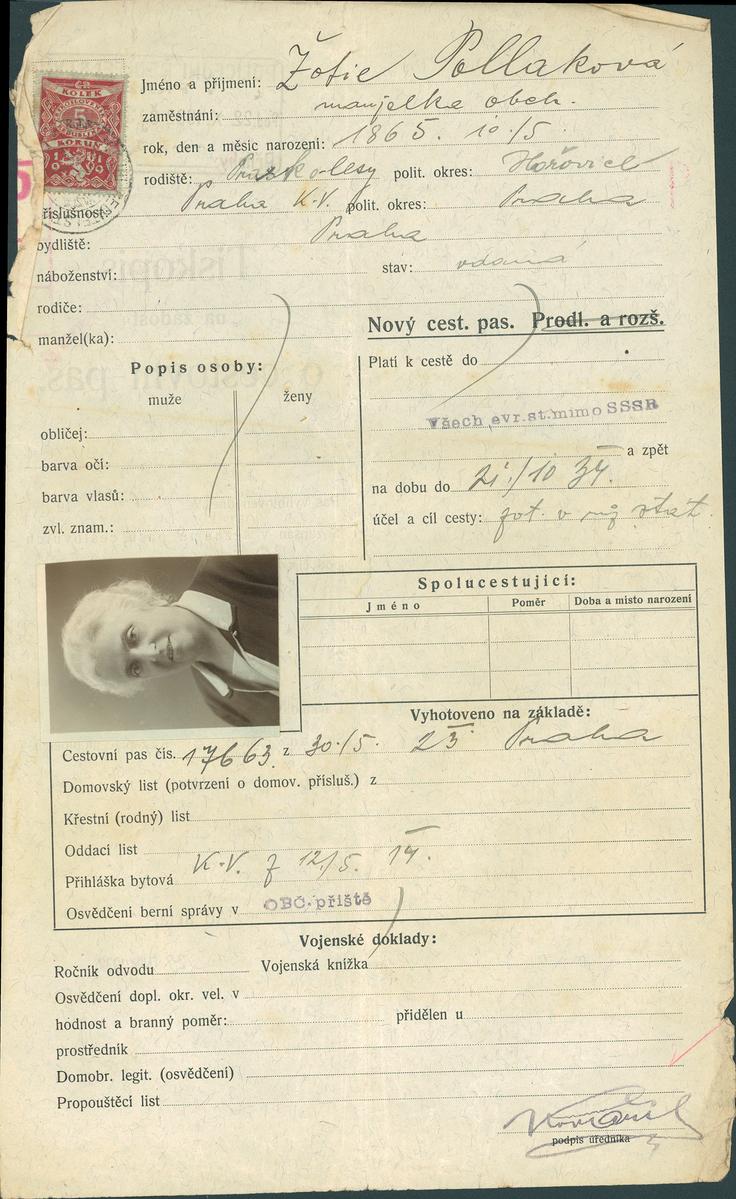 KOLEK
5
KORUN
19 19
Jméno a příjmení: Žofie Pollaková
zaměstnání: manželka obch.
rok, den a měsíc narození: 1865. 10./5.
rodiště: Praskolesy polit. okres: Hořovice
příslušnost: Praha K.V. polit. okres: Praha
bydliště: Praha
náboženství: stav: vdaná
rodiče:
manžel(ka):
Nový cest. pas. Prodl. a rozš.
Popis osoby:
muže ženy
obličej:
barva očí:
barva vlasů:
zvl. znam.:
Platí k cestě do
Všech evr.st.mimo SSSR
a zpět
na dobu do 21./10 34.
účel a cíl cesty:
Spolucestující:
Jméno Poměr Doba a místo narození
Vyhotoveno na základě:
Cestovní pas čís. 17663 z 30./5. 23 Praha
Domovský list (potvrzení o domov. přísluš.) z
Křestní (rodný) list
Oddací list
Přihláška bytová K.V. z 12/5. 14.
Osvědčení berní správy v OBČ. příště
Vojenské doklady:
Ročník odvodu Vojenská knížka
Osvědčení dopl. okr. vel. v
hodnost a branný poměr: přidělen u
prostředník
Domobr. legit. (osvědčení)
Propouštěcí list
podpis úředníka